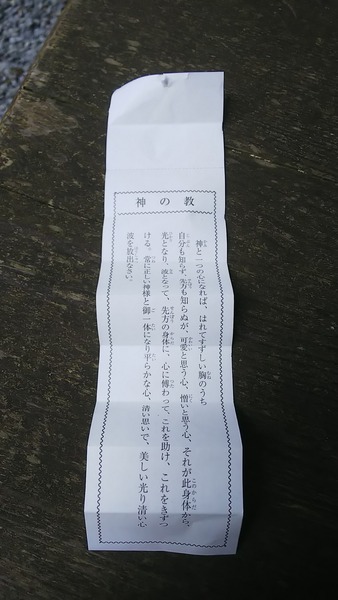 神の教
神と一つの心になれば、はれてすずしい胸のうち
自分も知らず、先方も知らぬが、可愛と思う心、憎いと思う心、それが此身体から、
光となり、波となって、先方の身体に、心に傳わって、これを助け、これをきずつ
ける。常に正しい神様と御一体になり平らかな心、清い思いで、美しい光り清い心
波を放出なさい。